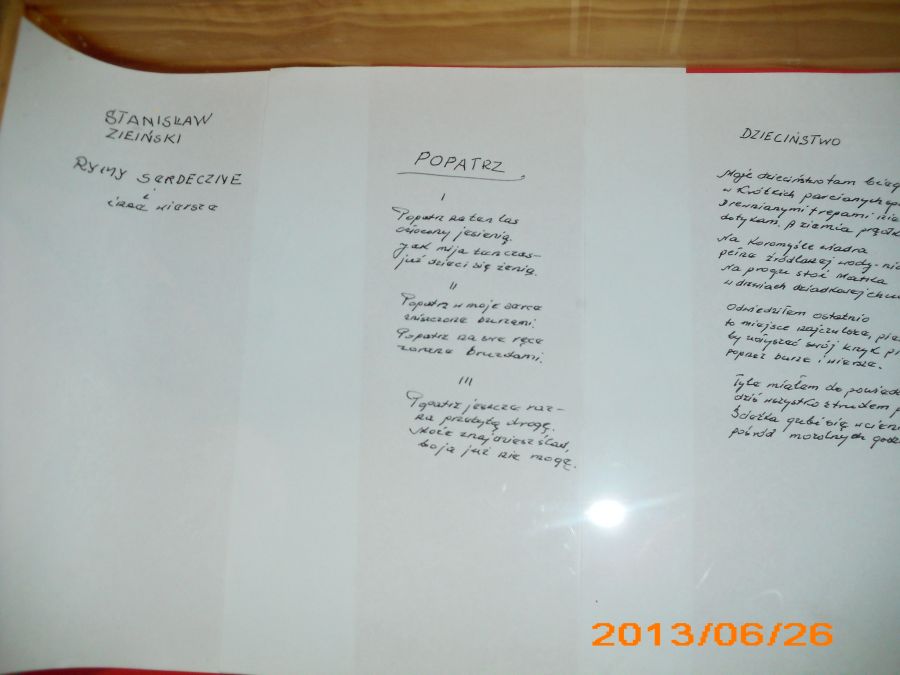 STANISŁAW
ZIEIŃSKI
RYMY SERDECZNE
i
inne wiersze
POPATRZ
I
Popatrz na ten las
ociocony jesienią.
Jak mija ten czas-
już dzieci się żenią.
II
Popatrz w moje serce
zniszczone burzami.
Popatrz na me ręce
zorane bruzdami.
III
Popatrz jeszcze raz-
na przebytą drogę.
Może znajdziesz ślad,
bo ja już nie mogę.
DZIECIŃSTWO
Moje dzieciństwo tam
w krótkich parcianych
Drewnianymi trepami
dotykam. A ziemia
Na koromyśle wiadra
pełne źródlanej wody-
Na progu stoi Matka
w drzwiach dziadkowej
Odwiedziłem ostatnio
to miejsce
by usłyszeć swój krzyk
poprzez burze i wiersze.
Tyle miałem do
dziś wszystko z trudem
Ścieżka gubi się w
pośród mozolnych
2013/06/26